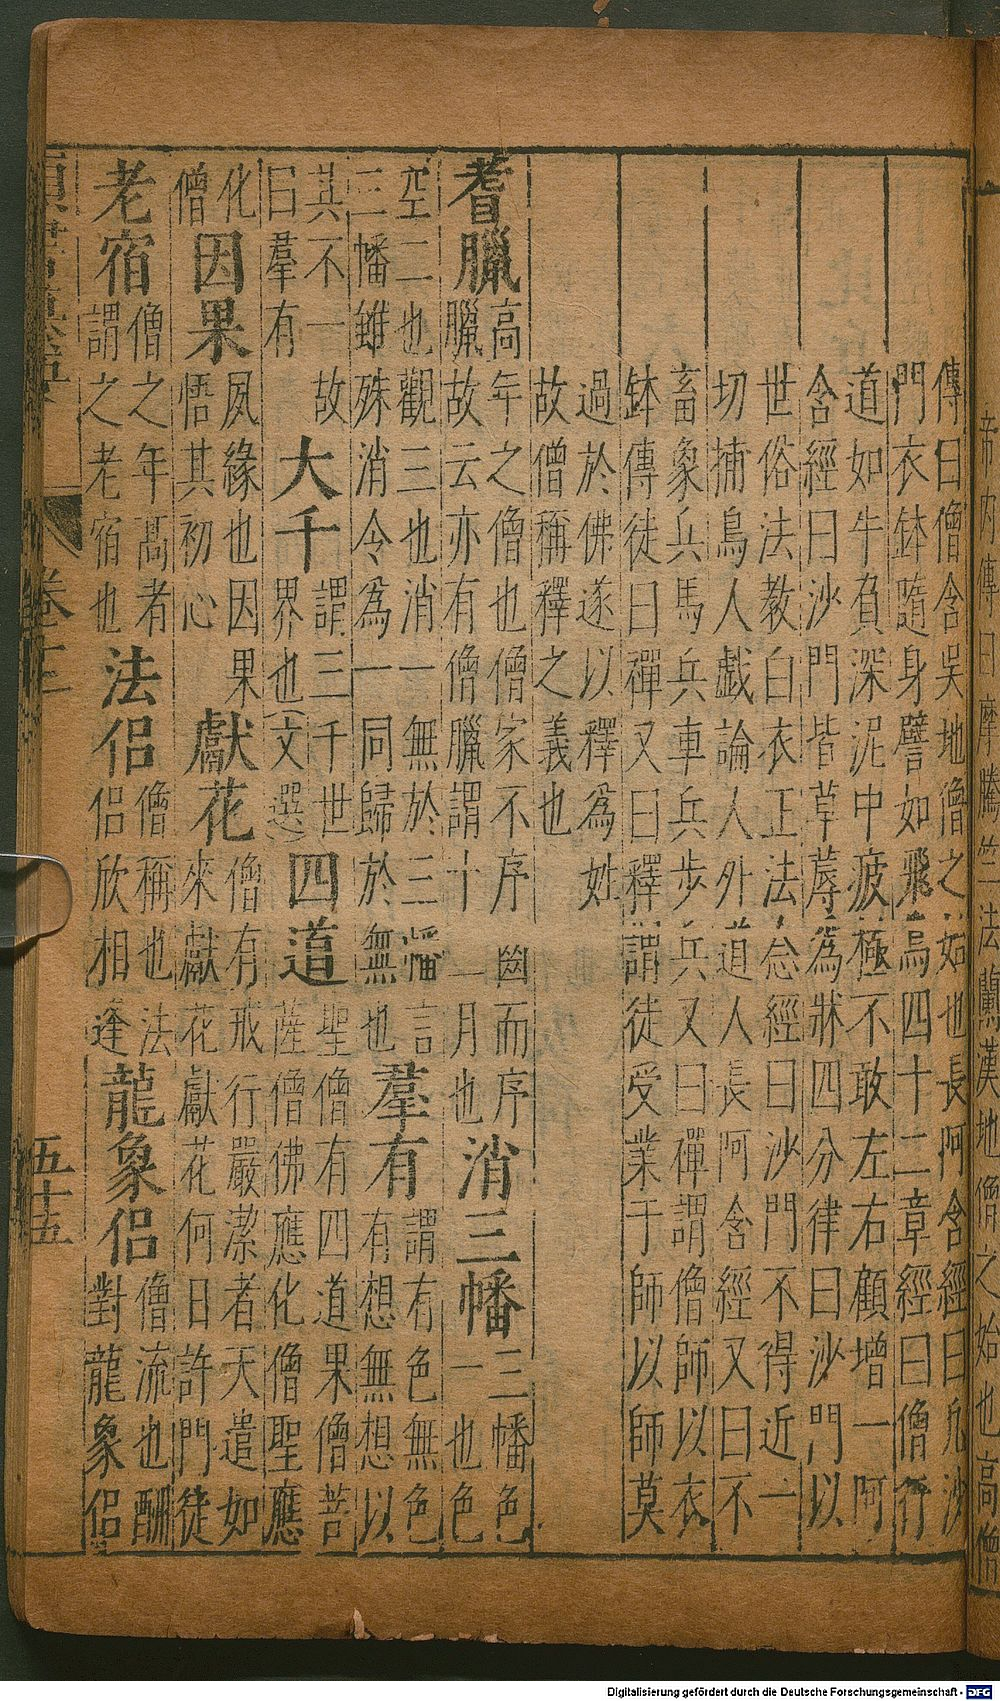 帝內傳曰摩騰竺法蘭漢地僧之始也高僧
傳曰僧含吳地僧之始也長阿含經曰凡沙
門衣鉢隨身譬如飛鳥四十二章經曰僧行
道如牛負深泥中疲極不敢左右顧增一阿
含經曰沙門皆草蓐為牀四分律曰沙門以
世俗法教白衣正法念經曰沙門不得近一
切捕鳥人戲論人外道人長阿含經又曰不
畜象兵馬兵車兵步兵又曰禪謂僧師以衣
鉢傳徒曰禪又曰釋謂徒受業于師以師莫
過於佛遂以釋為姓
故僧稱釋之義也
耆臘
高年之僧也僧家不序齒而序
臘故云亦有僧臘謂十一月也
消三幡
三幡色
一也色
空二也觀三也消一無於三幡言
三幡雖殊消令為一同歸於無也
羣有
謂有色無色
有想無想以
其不一故
曰羣有
大千
謂三千世
界也(文選
四道
聖僧有四道果僧菩
薩僧佛應化僧聖應
化
僧
因果
夙緣也因果
悟其初心
獻花
僧有戒行嚴潔者天遣如
來獻花獻花何日許門徒
老宿
僧之年高者
謂之老宿也
法侶
僧稱也法
侶欣相逢
龍象侶
僧流也酬
對龍象侶
卷十二
五十五
Digitalisierung gefördert durch die Deutsche Forschungsgemeinschaft - DFG